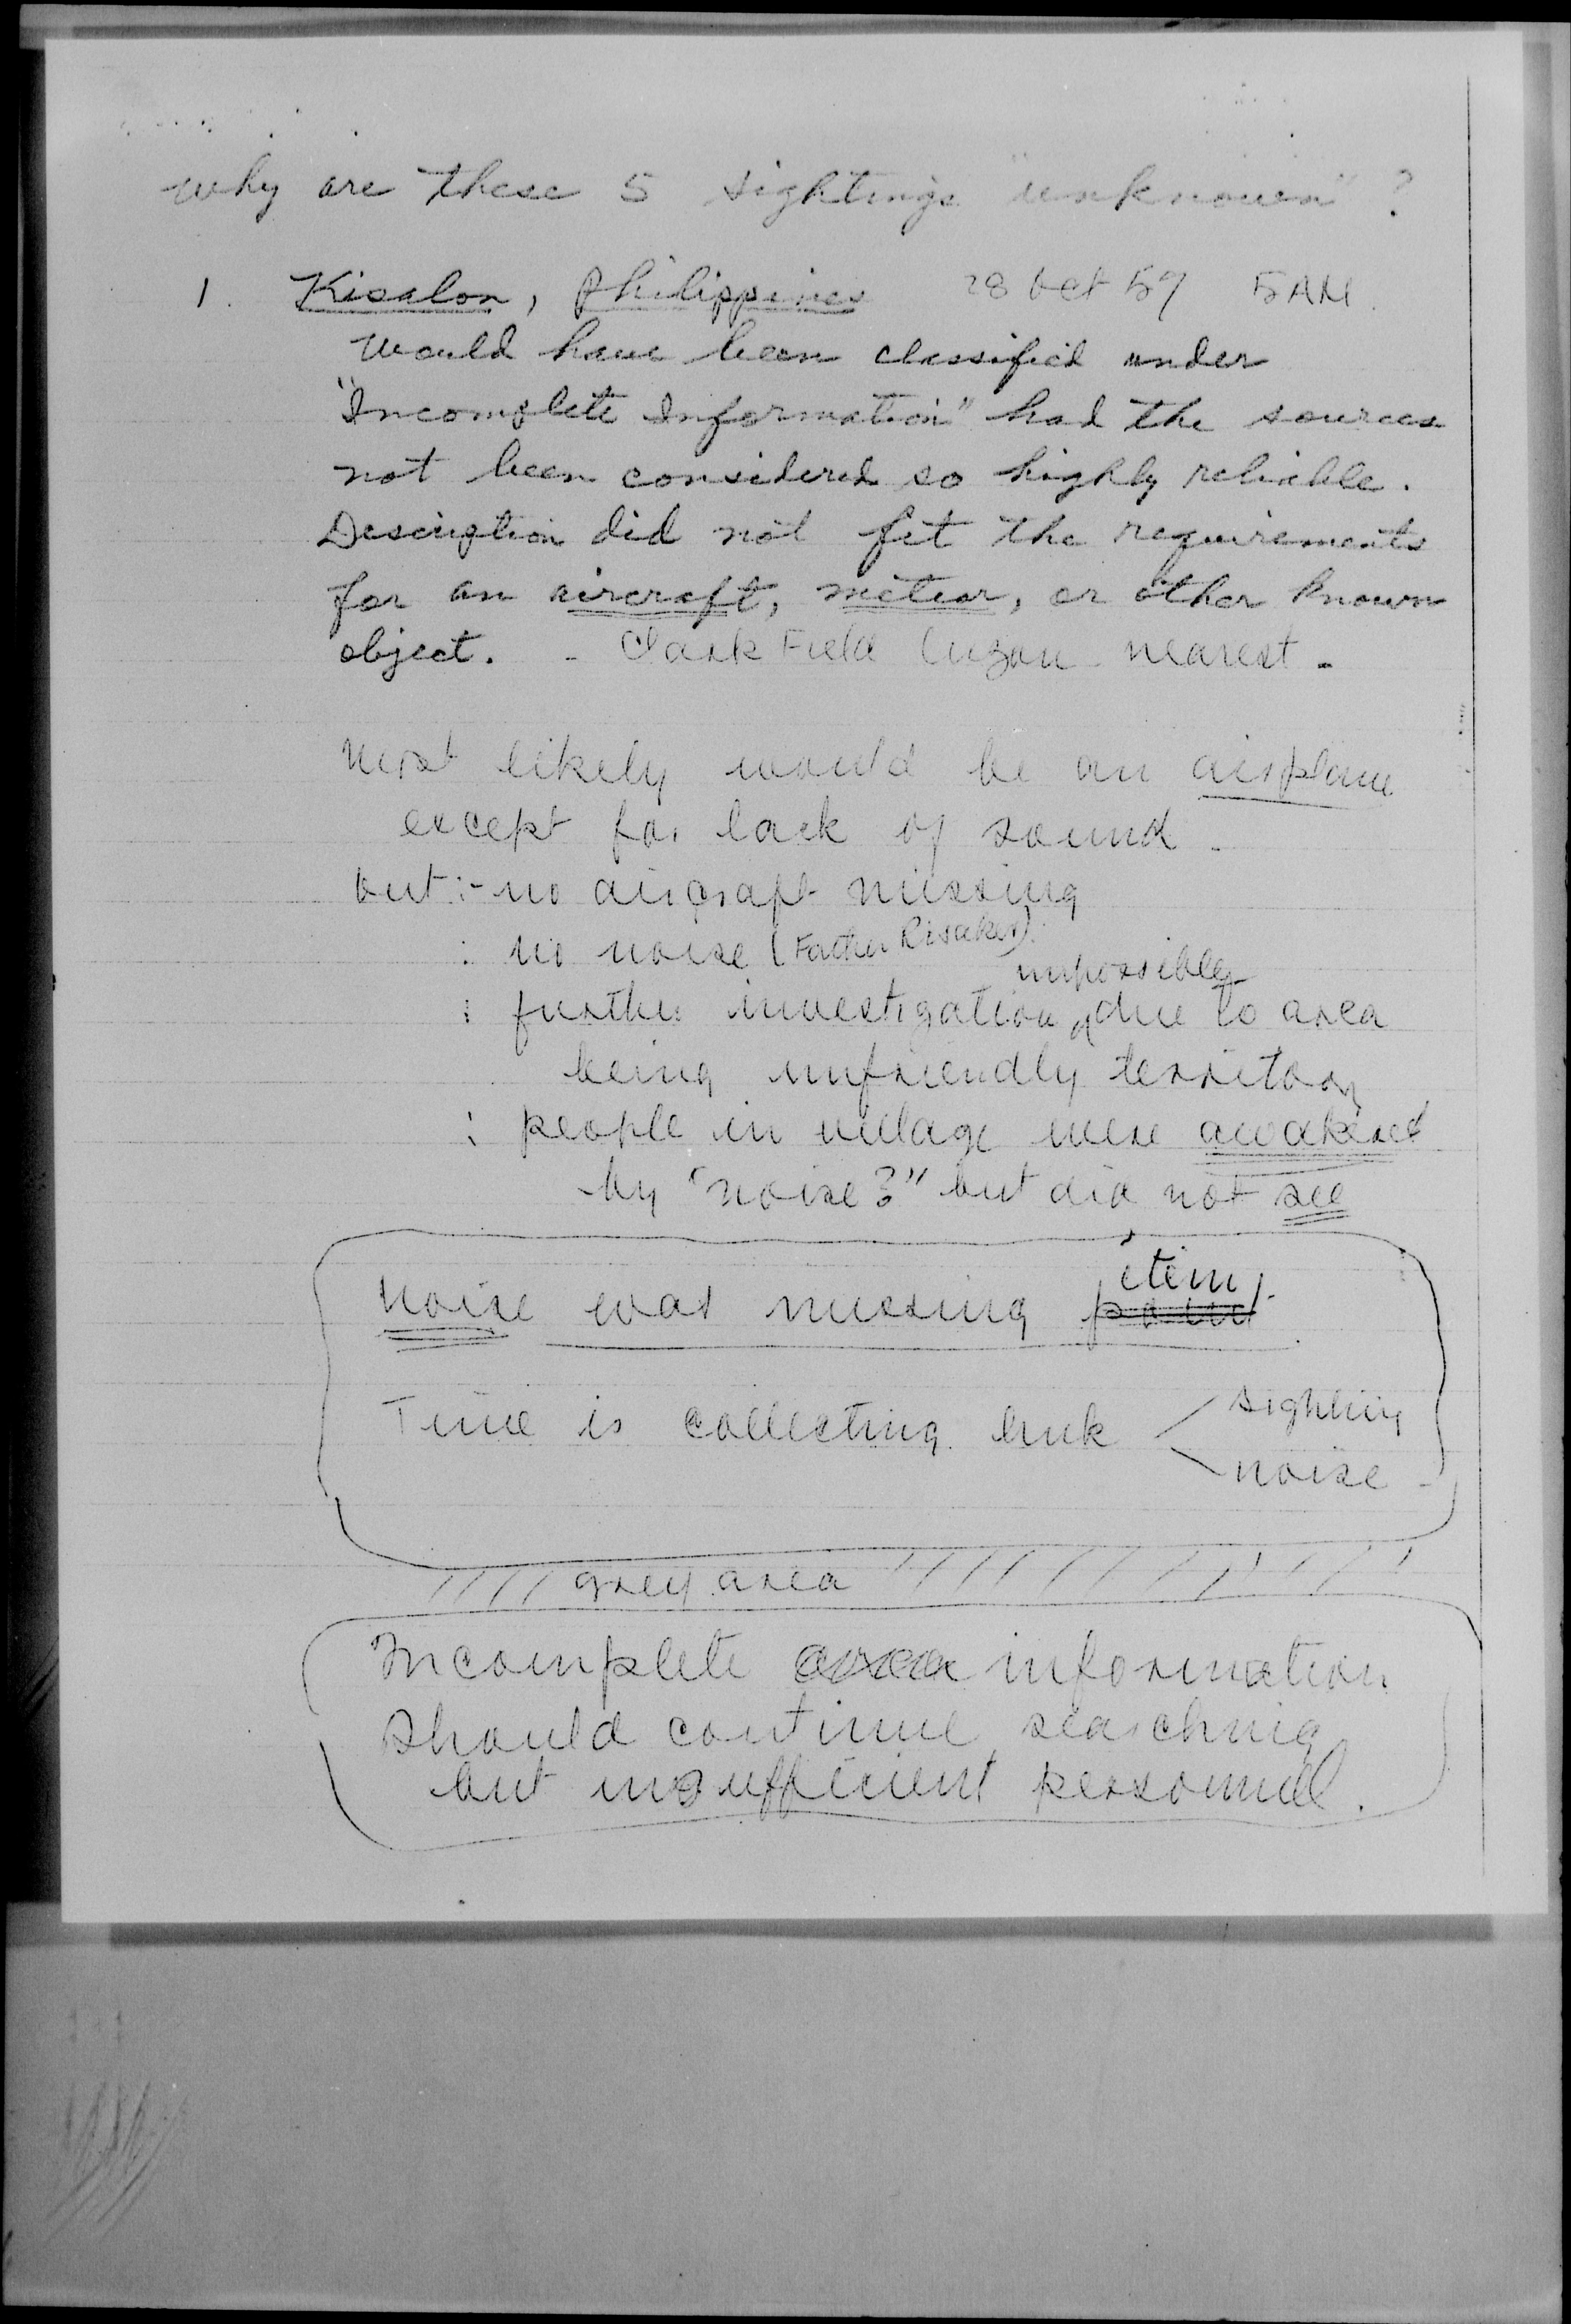 why are these 5 sightings "unknown" ?
1. Kisalon, Philippines 28 Oct 59 5AM.
Would have been classified under
"Incomplete Information" had the sources
not been considered so highly reliable.
Description did not fit the requirements
for an aircraft, meteor, or other known
object. - Clark Field Luzon nearest -
Most likely would be an airplane
except for lack of sound -
but :- no aircraft missing
: no noise (Father Risaker).
impossible
: further investigation due to area
being unfriendly territory
: people in village were awakened
by "noise?" but did not see
item
Noise was missing point.
Time is collecting link < sighting
noise -
grey area
Incomplete area information
should continue searching
but insufficient personnel.